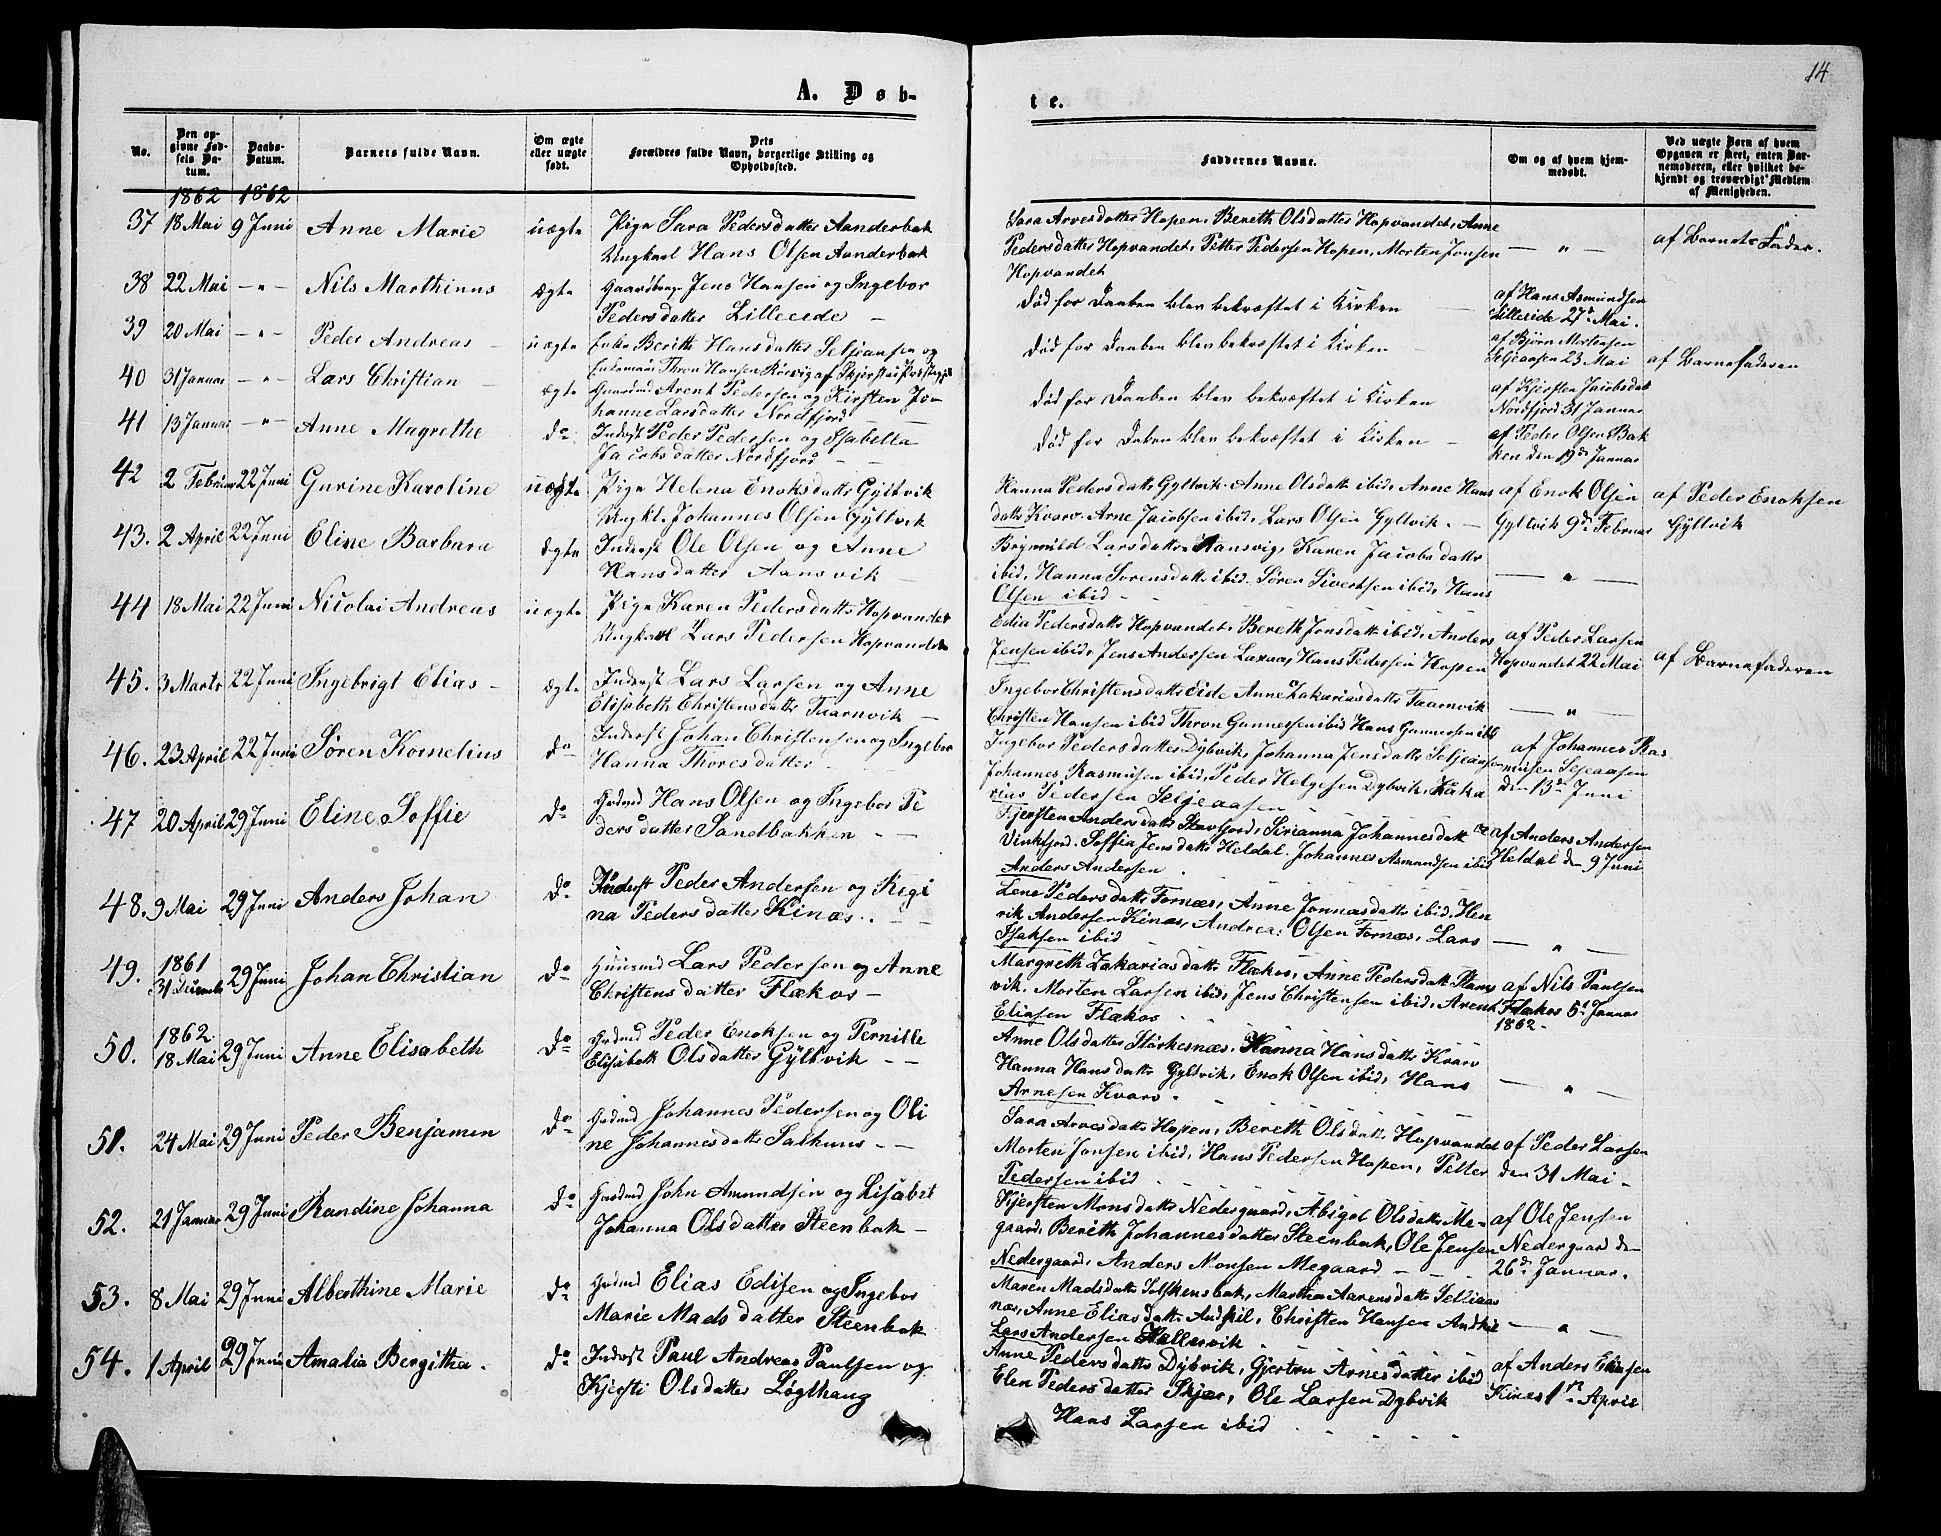 14
A. Døb-
te.
No.
Den op-
givne Fød-
sels Da-
tum.
Daabs-
Datum.
Barnets fulde Navn.
Om ægte
eller uægte
født.
Dets
Forældres fulde Navn, borgerlige Stilling og
Opholdssted.
Faddernes Navne.
Om og af hvem hjem-
medøbt.
Ved uægte Børn af hvem
Opgaven er skeet, enten Bar-
nemoderen, eller hvilket be-
kjendt og troværdigt Medlem
af Menigheden.
1862 1862
37 18 Mai 9 Juni Anne Marie uægte Pige Sara Pedersdatter Aanderbak
Ungkarl Hans Olsen Aanderbak
Sara Arvesdatter Hopen, Bereth Olsdatter Hopvandet, Anne
Pedersdatter Hopvandet, Petter Pedersen Hopen, Morten Jonsen
Hopvandet
— " —
af Barnets Fader.
38 22 Mai — " — Nils Marthinus ægte Gaardbruger Jens Hansen og Ingebor
Pedersdatter Lilleeide —
Død før Daaben blev bekræftet i Kirken —
af Hans Asmundsen
Lilleeide 27de Mai.
39 20 Mai — " — Peder Andreas uægte Enke Berithe Hansdatter Seljeaasen og
Enkemand Thron Hansen Rørvig af Skjerstad Præstegjeld
Død før Daaben blev bekræftet i Kirken —
af Bjørn Mortensen
Seljeaasen 23 Mai
af Barnefaderen
40 31 Januar — " — Lars Christian — ægte Gaardmd Arent Pedersen og Kirsten Jo-
hanne Larsdatter Nordfjord —
Død før Daaben blev bekræftet i Kirken
af Kjersten Jacobsdat
Nordfjord 31 Januar
41 13 Januar — " — Anne Magrethe do Inderst Peder Pedersen og Isabella
Jacobsdatter Nordfjord —
Død før Daben blev bekræftet i Kirken —
af Peder Olsen Bak
ken den 19de Januar
42 2 Februar 22 Juni Gurine Karoline uægte Pige Helena Enoksdatter Gyltvik
Ungkl. Johannes Olsen Gyltvik
Hanna Pedersdatt Gyltvik. Anne Olsdatt ibid, Anne Hans
datte Kvarv. Arne Jacobsen ibid, Lars Olsen Gyltvik. —
af Enok Olsen
Gyltvik 9de Februar
af Peder Enoksen
Gyltvik
43. 2 April 22 Juni Eline Barbara ægte Inderst Ole Olsen og Anne
Hansdatter Aansvik —
Larsdatter Aansvig, Karen Jacobsdatter
ibid, Hanna Sørensdatt ibid. Søren Sivertsen ibid, Hans
Olsen ibid
— " —
44 18 Mai 22 Juni Nicolai Andreas uægte Pige Karen Pedersdatter Hopvandet
Ungkarl Lars Pedersen Hopvandet
Edia Pedersdatter Hopvandet, Bereth Jonsdatt ibid, Anders
Jensen ibid, Jens Andersen Laxaa, Hans Pedersen Hopen
af Peder Larsen
Hopvandet 22 Mai
af Barnefaderen
45. 3 Marts 22 Juni Ingebrigt Elias — ægte Inderst Lars Larsen og Anne
Elisabeth Christensdatter Taarnvik —
Ingebor Christensdatter Eide Anne Zakariasdatter Taarnvik
Christen Hansen ibid Thron Gunnersen ibid Hans Gunnersen ibid
— " —
46. 23 April 22 Juni Søren Kornelius do Inderst Johan Christensen og Ingebor
Hanna Thoresdatter —
Ingebor Pedersdatter Dybvik, Johanna Jensdatter Seljeaasen
Johannes Rasmusen ibid, Peder Helgesen Dybvik, Zaka
rias Pedersen Seljeaasen —
af Johannes Ras
musen Seljeaasen
den 13de Juni
47 20 April 29 Juni Eline Soffie do Grdmd Hans Olsen og Ingebor Pe
dersdatter Sandbakken —
Kjersten Andersdatter Storfjord, Sirianna Johannesdatter
Vinkfjord. Soffia Jensdatter Heldal. Johannes Asmundsen ibid
Anders Andersen
af Anders Andersen
Heldal den 9 Juni
48. 9 Mai 29 Juni Anders Johan do Inderst Peder Andersen og Regi
na Pedersdatter Kinæs. —
Lene Pedersdatter Fornæs, Anne Jonnasdatter ibid, Hen
rik Andersen Kinæs, Andreas Olsen Fornæs, Lars
Isaksen ibid
— " —
49. 1861
31 December 29 Juni Johan Christian do Huusmd Lars Pedersen og Anne
Christensdatter Flækos —
Margreth Zakariasdatter Flækos, Anne Pedersdatt
vik. Morten Larsen ibid, Jens Christensen ibid, Arent
Eliasen Flækos
af Nils Paulsen
Flækos 5te Januar
1862.
50. 1862
18 Mai 29 Juni Anne Elisabeth do Grdmd Peder Enoksen og Pernille
Elisabet Olsdatter Gyltvik —
Anne Olsdatter Storkesnæs, Hanna Hansdatter Kvarv
Hanna Hansdatter Gyltvik, Enok Olsen ibid, Hans
Arnesen Kvarv.
— " —
51. 24 Mai 29 Juni Peder Benjamin do Grdmd Johannes Pedersen og Oli
ne Johannesdatter Salhuus —
Sara Arvesdatter Hopen, Bereth Olsdatter Hopvandet
Morten Jonsen ibid, Hans Pedersen Hopen, Petter
Pedersen ibid
af Peder Larsen
den 31 Mai —
52. 21 Januar 29 Juni Randine Johanna do Grdmd John Amundsen og Lisabet
Johanna Olsdatter Steenbak —
Kjersten Monsdatter Nedergaard, Abigel Olsdatter Me-
gaard, Berith Johannesdatter Steenbak, Ole Jensen
Nedergaard, Anders Monsen Megaard —
af Ole Jensen
Nedergaard den
26de Januar.
53. 8 Mai 29 Juni Alberthine Marie do Grdmd Elias Edisen og Ingebor
Marie Madsdatter Steenbak
Maren Madsdatter Solstensbak, Martha Aarensdatter Selliaas
næs, Anne Eliasdatter Andkil, Christen Hansen Andkil
Lars Andersen Hallersvik
— " —
54. 1 April 29 Juni Amalia Bergitha. do Inderst Paul Andreas Paulsen og
Kjersti Olsdatter Løgthaug
Anne Pedersdatter Dybvik, Gjertru Arnesdatter ibid
Elen Pedersdatter Skjær, Ole Larsen Dybvik
Hans Larsen ibid
af Anders Eliasen
Kinæs 1ste April